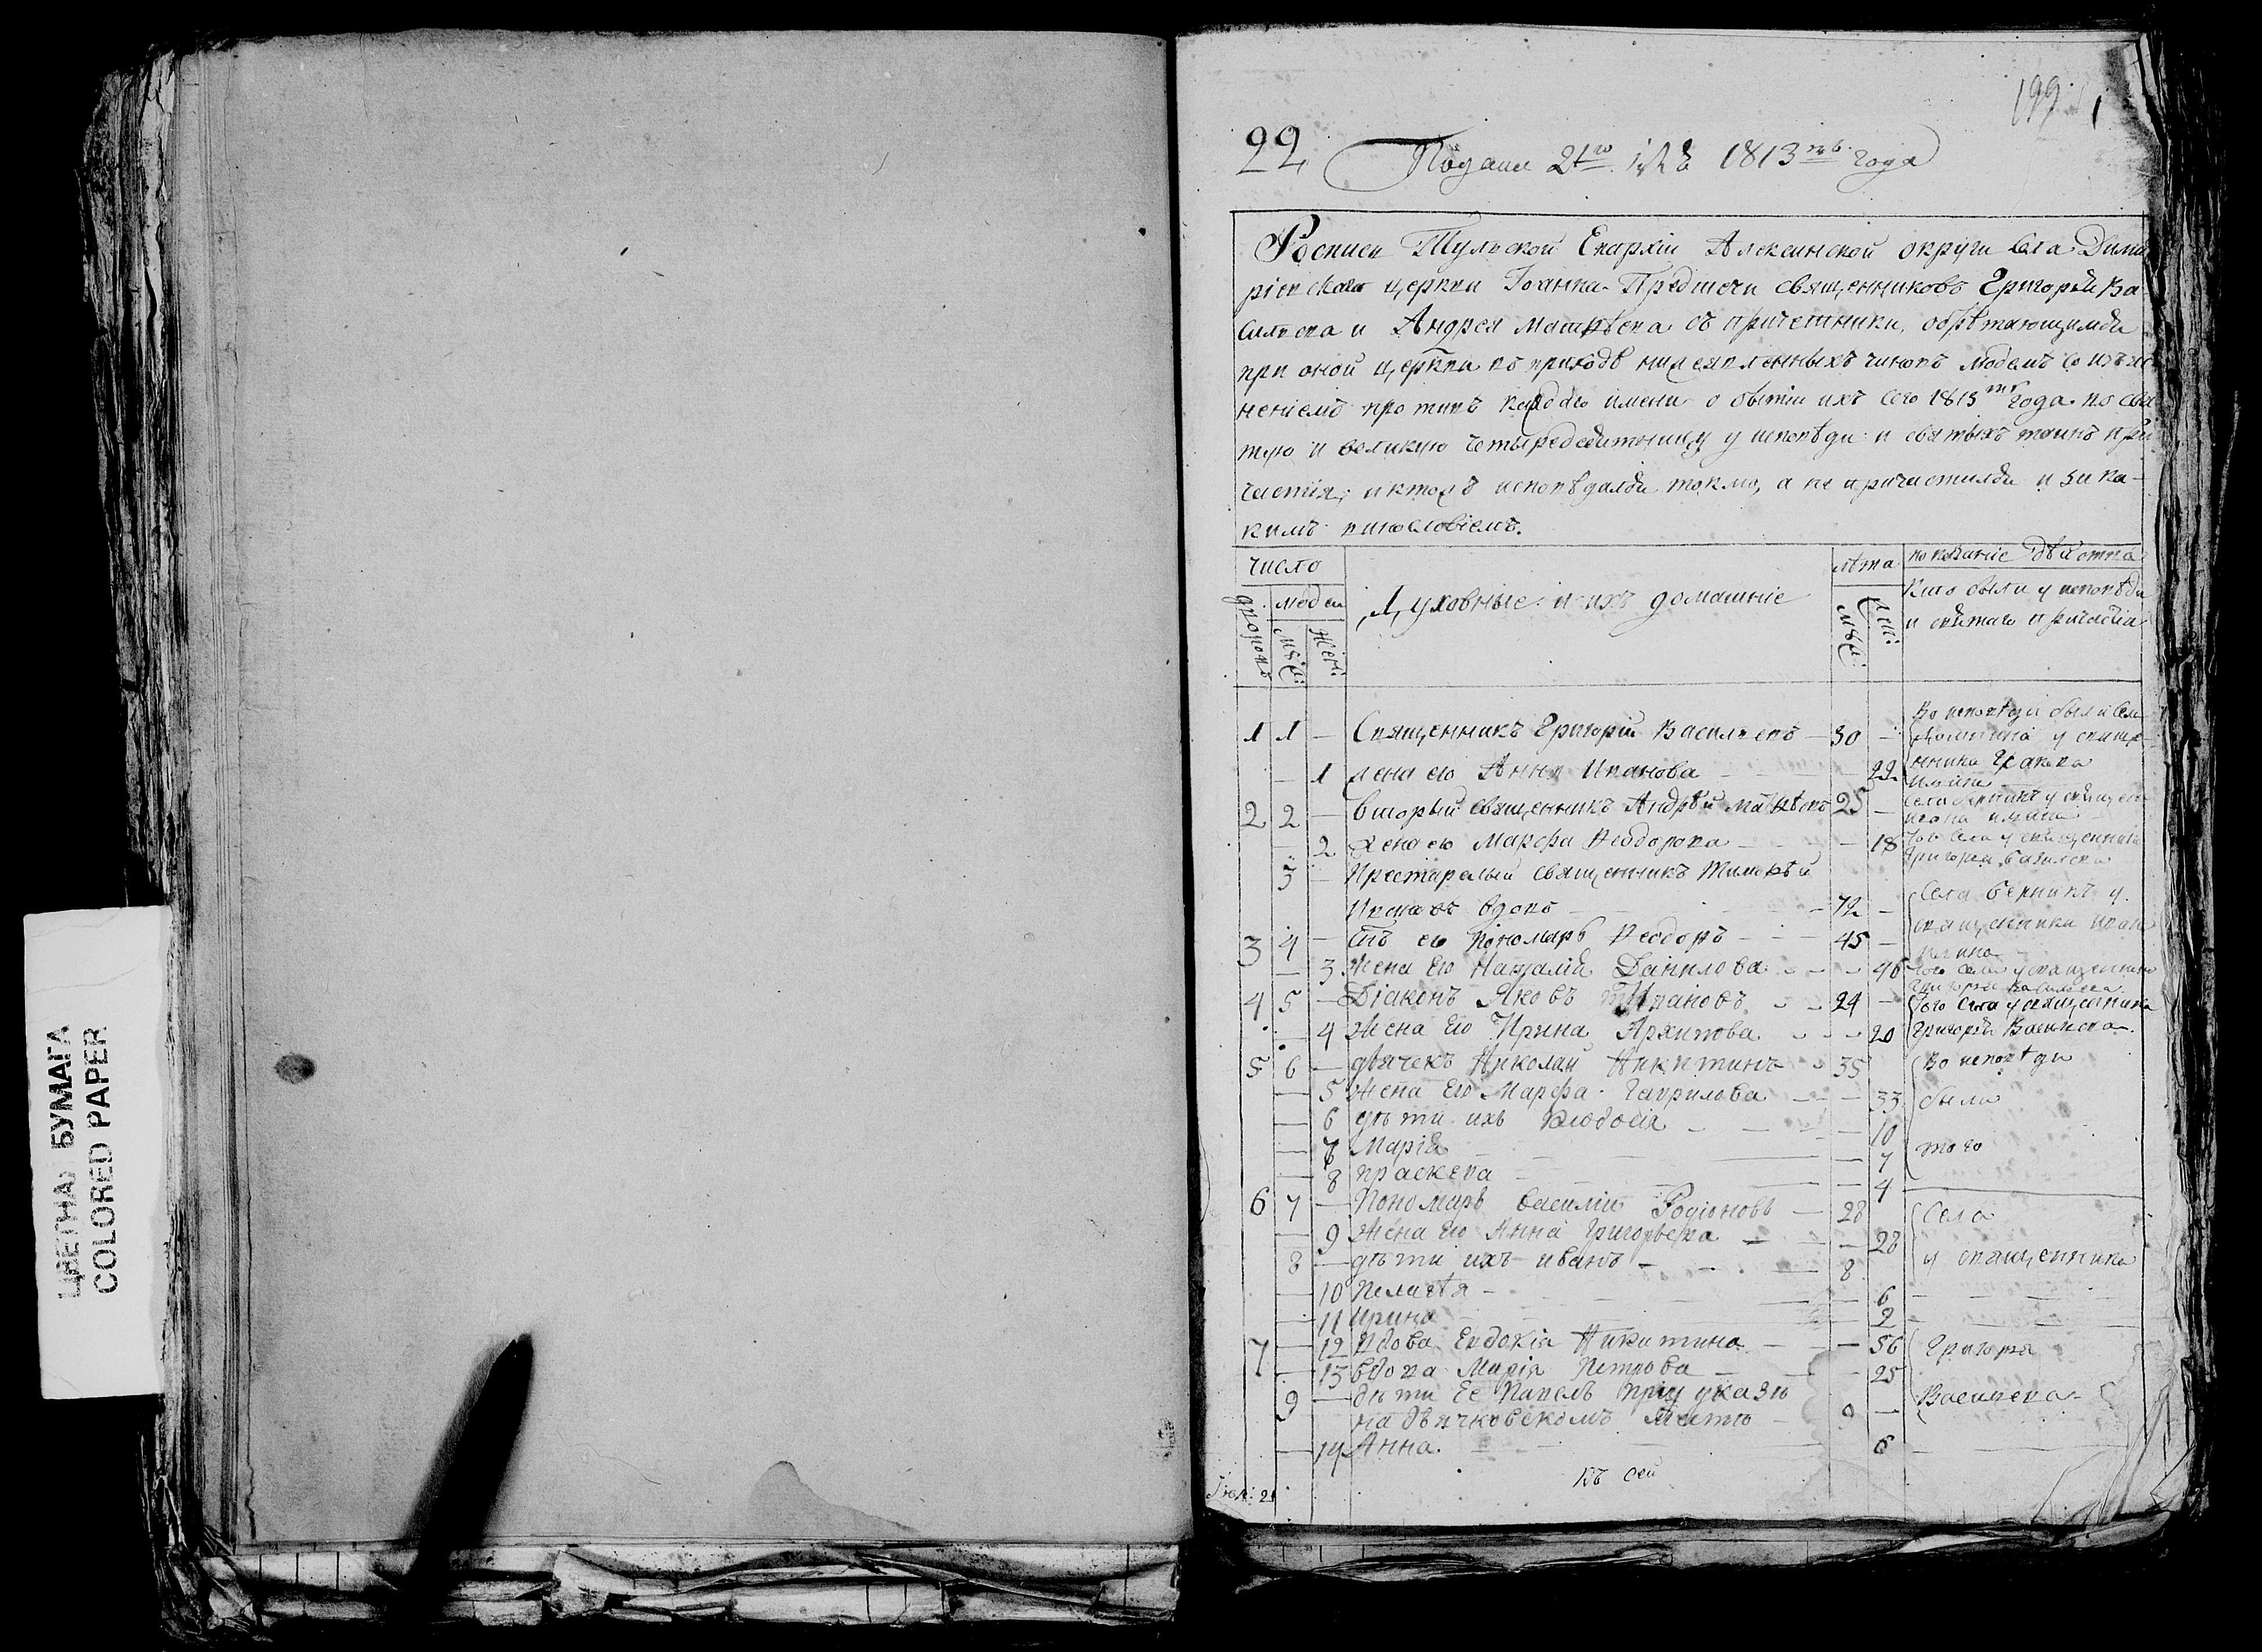 ЦВЕТНАЯ БУМАГА
COLORED PAPER
199
1
22
Подана 21го 1813го года
Роспись Тульской Епархіи Алексинской округи Села Дими
ріевскаго церкви Іоанна Предтечи священниковъ Григорья Ва
сильева и Андрея Матвѣева съ причетники, обрѣтающимся
при оной церкви въ приходѣ нижеявленныхъ чиновъ людемъ со изъяс
неніемъ противъ каждаго имени о бытіи ихъ сего 1813го года во свя
тую и великую четыредесятницу у исповѣди и святыхъ таинъ при
частія, и ктожъ исповѣдался токмо, а не причастился и за ка-
кимъ винословіемъ.
число
лѣта
показаніе дѣйства
людей
Духовные и ихъ домашніе
Кто были у исповѣди
и святаго причастія
дворовъ
муж:
жен:
муж:
жен:
1 1 — Священникъ Григорій Васильевъ — 30 —
Во исповѣди были Села
у священ-
ника
— 1 жена его Анна Иванова — 22
2 2 — вторый священникъ Андрѣй Матвѣевъ 25 —
— 2 жена его Марфа Ѳеодорова — 18
Того Села у священника
Григорья Васильева
3 — Престарелый священникъ Тимоѳѣй
Ивановъ вдовъ — 72 —
Села у
священника Иван
3 4 — сынъ его пономарь Ѳеодоръ — 45 —
— 3 Жена Его Наталія Данилова — 46
того Села у священника
Григорья Васильева
4 5 — Діаконъ Яковъ Ивановъ — 24 —
Того Села у священника
— 4 Жена Его Ирина Архипова — 20
Григорья Васильева.
5 6 — дьячекъ Николай Никитинъ — 35
Во исповѣди
— 5 Жена Его Марфа Гаврилова — 33
были
— 6 дѣти ихъ Ѳеодосія — 10
— 7 Марія — 7
того
— 8 праскева — 4
6 7 — Пономарь Василій Родіоновъ — 28
Села
— 9 Жена Его Анна Григорьева — 28
8 — дѣти ихъ иванъ — 8
у священника
— 10 Пелагѣя — 6
— 11 Ирина — 2
7 — 12 Вдова Евдокія Никитина — 56
Григорья
— 13 вдова Марія Петрова — 25
9 — дѣти Ее Павелъ при указѣ
на дьячковскомъ мѣстѣ — 9 —
Васильева
— 14 Анна. — 6
Къ сей